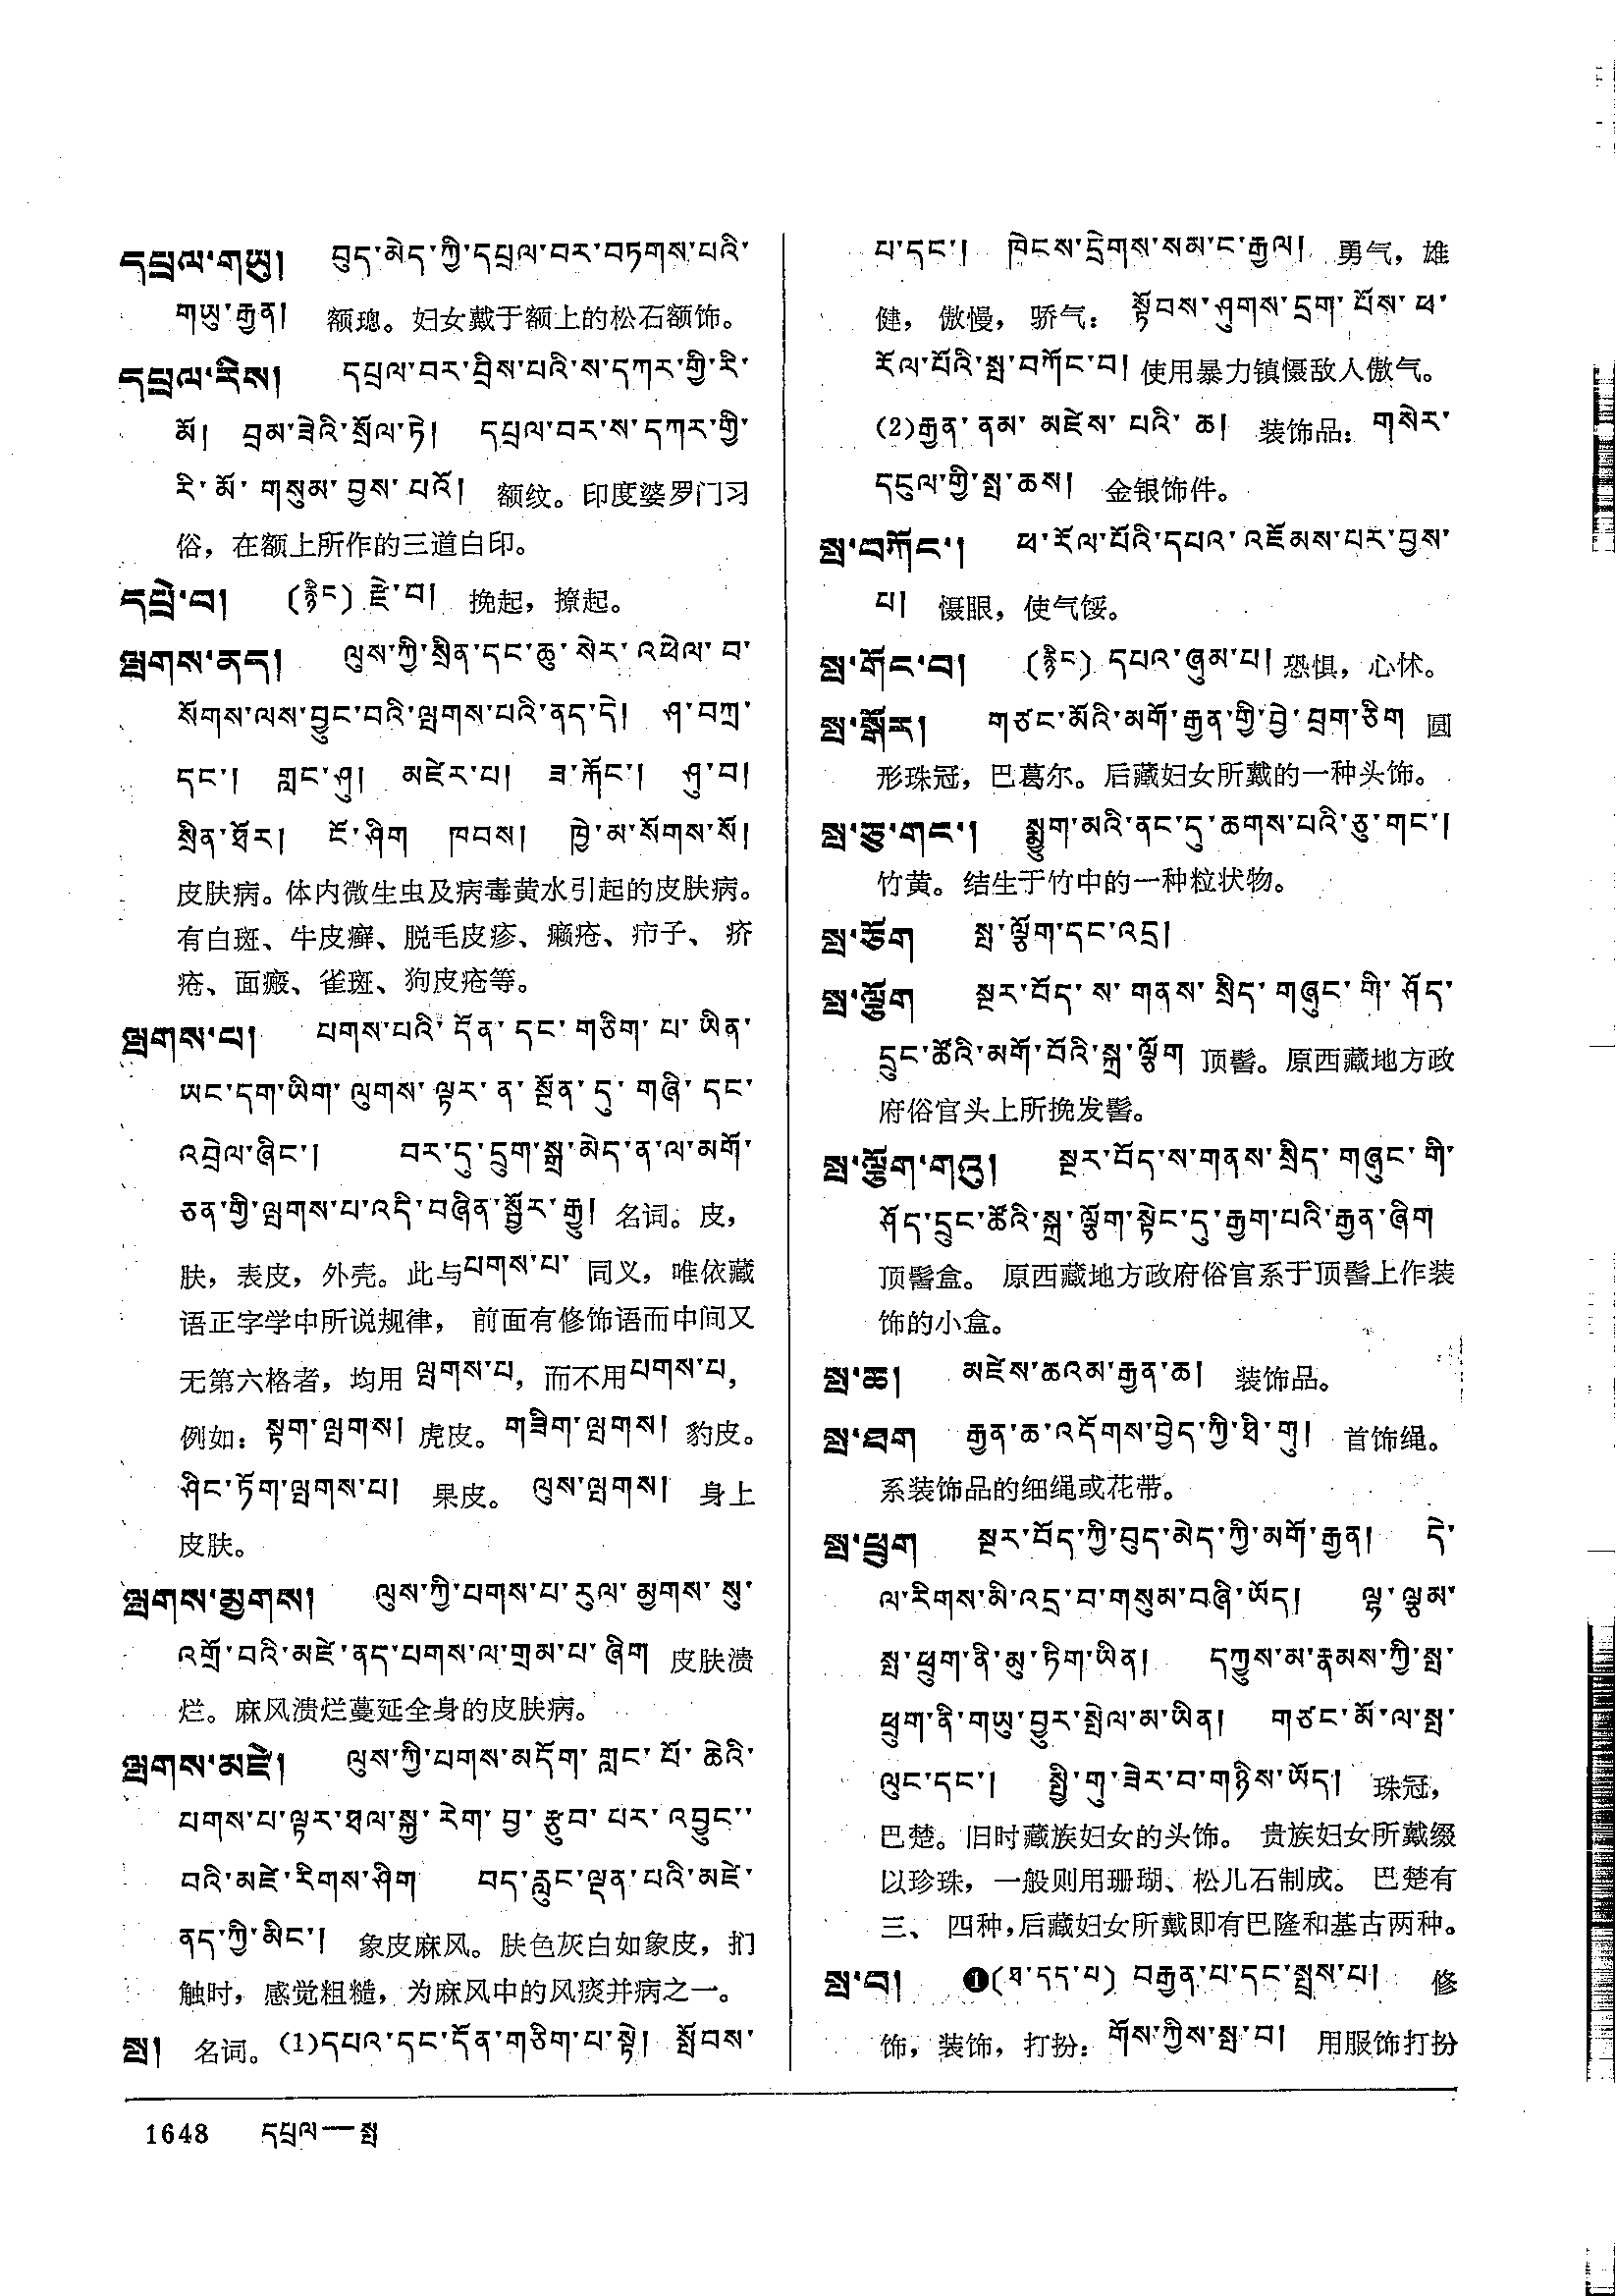 དཔྲལ་གཡུ། བུད་མེད་ཀྱི་དཔྲལ་བར་བཏགས་པའི་
གཡུ་རྒྱན། 额璁。妇女戴于额上的松石额饰。
དཔྲལ་རིས། དཔྲལ་བར་བྲིས་པའི་ས་དཀར་གྱི་རི་
མོ། བྲམ་ཟེའི་སྲོལ་ཏེ། དཔྲལ་བར་ས་དཀར་གྱི་
རི་མོ་གསུམ་བྱས་པའོ། 额纹。印度婆罗门习
俗，在额上所作的三道白印。
དཔྲེ་བ། (རྙིང) རྫེ་བ། 挽起，撩起。
ལྤགས་ནད། ལུས་ཀྱི་སྲིན་དང་ཆུ་སེར་འཕེལ་བ་
སོགས་ལས་བྱུང་བའི་ལྤགས་པའི་ནད་དེ། ཤ་བཀྲ་
དང་། གླང་ཤུ། མཛེར་པ། ཟ་རྐོང་། ཤུ་བ།
སྲིན་ཐོར། ངོ་ཤིག ཁབས། ཁྱི་མ་སོགས་སོ།
皮肤病。体内微生虫及病毒黄水引起的皮肤病。
有白斑、牛皮癣、脱毛皮疹、癞疮、疖子、疥
疮、面瘢、雀斑、狗皮疮等。
ལྤགས་པ། པགས་པའི་དོན་དང་གཅིག་པ་ཡིན་
ཡང་དག་ཡིག་ལུགས་ལྟར་ན་སྔོན་དུ་གཞི་དང་
འབྲེལ་ཞིང་། བར་དུ་དྲུག་སྒྲ་མེད་ན་ལ་མགོ་
ཅན་གྱི་ལྤགས་པ་འདི་བཞིན་སྦྱོར་རྒྱུ། 名词。皮，
肤，表皮，外壳。此与པགས་པ་ 同义，唯依藏
语正字学中所说规律，前面有修饰语而中间又
无第六格者，均用 ལྤགས་པ，而不用པགས་པ，
例如：སྟག་ལྤགས། 虎皮。གཟིག་ལྤགས། 豹皮。
ཤིང་ཏོག་ལྤགས་པ། 果皮。 ལུས་ལྤགས། 身上
皮肤。
ལྤགས་མྱགས། ལུས་ཀྱི་པགས་པ་རུལ་མྱགས་སུ་
འགྲོ་བའི་མཛེ་ནད་པགས་ལ་གྲམ་པ་ཞིག 皮肤溃
烂。麻风溃烂蔓延全身的皮肤病。
ལྤགས་མཛེ། ལུས་ཀྱི་པགས་མདོག་གླང་པོ་ཆེའི་
པགས་པ་ལྟར་ཐལ་སྐྱ་རེག་བྱ་རྩུབ་པར་འབྱུང་
བའི་མཛེ་རིགས་ཤིག བད་རླུང་ལྡན་པའི་མཛེ་
ནད་ཀྱི་མིང་། 象皮麻风。肤色灰白如象皮，扪
触时，感觉粗糙，为麻风中的风痰并病之一。
སྤྲ། 名词。(1)དཔའ་དང་དོན་གཅིག་པ་སྟེ། སྤོབས་
པ་དང་། ཁེངས་དྲེགས་སམ་ང་རྒྱལ། 勇气，雄
健，傲慢，骄气：སྟོབས་ཤུགས་དྲག་པོས་ཕ་
རོལ་པོའི་སྤྲ་བཀོང་བ། 使用暴力镇慑敌人傲气。
(2)རྒྱན་ནམ་མཛེས་པའི་ཆ། 装饰品：གསེར་
དངུལ་གྱི་སྤྲ་ཆས། 金银饰件。
སྤྲ་བཀོང་། ཕ་རོལ་པོའི་དཔའ་འཇོམས་པར་བྱས་
པ། 慑眼，使气馁。
སྤྲ་གོང་བ། (རྙིང) དཔའ་ཞུམ་པ། 恐惧，心怵。
སྤྲ་སྒོར། གཙང་མོའི་མགོ་རྒྱན་གྱི་བྱེ་བྲག་ཅིག 圆
形珠冠，巴葛尔。后藏妇女所戴的一种头饰。
སྤྲ་ཅུ་གང་། སྨྱུག་མའི་ནང་དུ་ཆགས་པའི་ཅུ་གང་།
竹黄。结生于竹中的一种粒状物。
སྤྲ་ཅོག སྤྲ་ལྕོག་དང་འདྲ།
སྤྲ་ལྕོག སྔར་བོད་ས་གནས་སྲིད་གཞུང་གི་ཤོད་
དྲུང་ཚོའི་མགོ་བོའི་སྐྲ་ལྕོག 顶髻。原西藏地方政
府俗官头上所挽发髻。
སྤྲ་ལྕོག་གའུ། སྔར་བོད་ས་གནས་སྲིད་གཞུང་གི་
ཤོད་དྲུང་ཚོའི་སྐྲ་ལྕོག་སྟེང་དུ་རྒྱག་པའི་རྒྱན་ཞིག
顶髻盒。原西藏地方政府俗官系于顶髻上作装
饰的小盒。
སྤྲ་ཆ། མཛེས་ཆའམ་རྒྱན་ཆ། 装饰品。
སྤྲ་ཐག རྒྱན་ཆ་འདོགས་བྱེད་ཀྱི་ཐི་གུ། 首饰绳。
系装饰品的细绳或花带。
སྤྲ་ཕྲུག སྔར་བོད་ཀྱི་བུད་མེད་ཀྱི་མགོ་རྒྱན། དེ་
ལ་རིགས་མི་འདྲ་བ་གསུམ་བཞི་ཡོད། ལྷ་ལྕམ་
སྤྲ་ཕྲུག་ནི་མུ་ཏིག་ཡིན། དཀྱུས་མ་རྣམས་ཀྱི་སྤྲ་
ཕྲུག་ནི་གཡུ་བྱུར་སྤེལ་མ་ཡིན། གཙང་མོ་ལ་སྤྲ་
ལུང་དང་། སྤྱི་གུ་ཟེར་བ་གཉིས་ཡོད། 珠冠，
巴楚。旧时藏族妇女的头饰。贵族妇女所戴缀
以珍珠，一般则用珊瑚、松儿石制成。巴楚有
三、四种，后藏妇女所戴即有巴隆和基古两种。
སྤྲ་བ། ❶(ཐ་དད་པ) བརྒྱན་པ་དང་སྤྲས་པ། 修
饰，装饰，打扮：གོས་ཀྱིས་སྤྲ་བ། 用服饰打扮
1648 དཔྲལ—སྤྲ